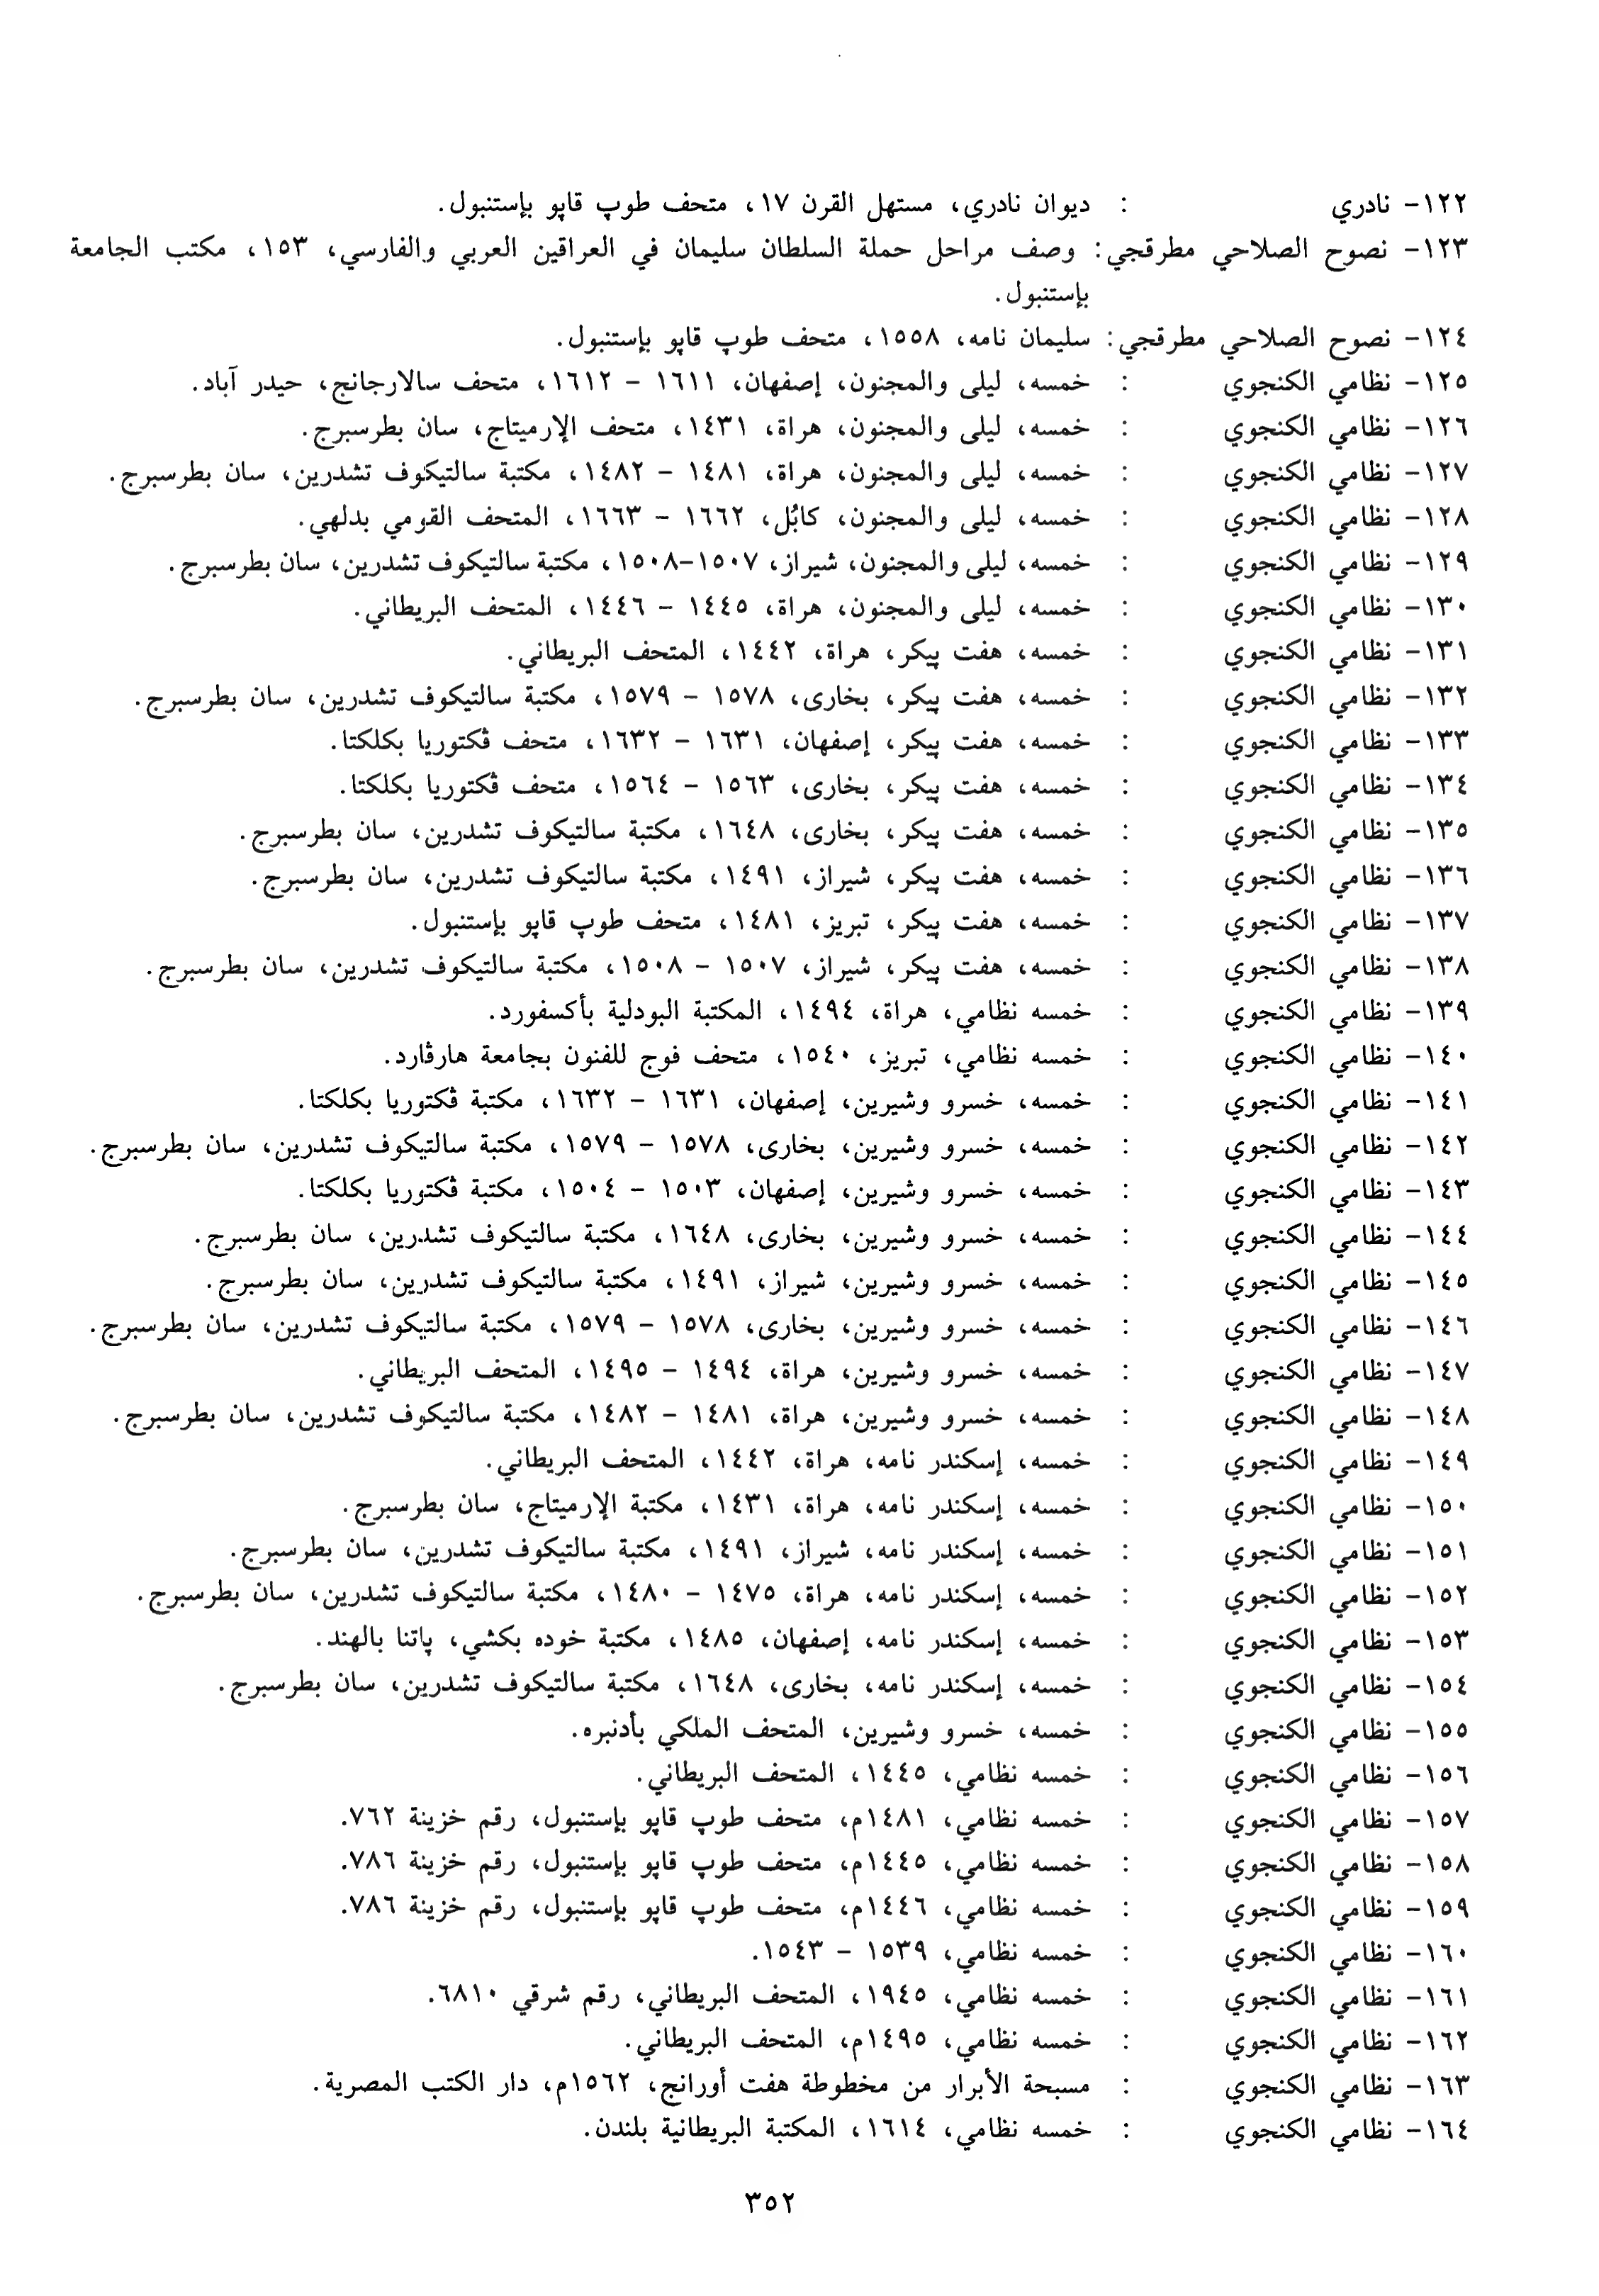 ١٢٢- نادري : ديوان نادري، مستهل القرن ١٧، متحف طوپ قاپو بإستنبول.
١٢٣- نصوح الصلاحي مطرقجي: وصف مراحل حملة السلطان سليمان في العراقين العربي والفارسي، ١٥٣، مكتب الجامعة
بإستنبول.
١٢٤- نصوح الصلاحي مطرقجي: سليمان نامه، ١٥٥٨، متحف طوپ قاپو بإستنبول.
١٢٥- نظامي الكنجوي : خمسه، ليلى والمجنون، إصفهان، ١٦١١ – ١٦١٢، متحف سالارجانج، حيدر آباد.
١٢٦- نظامي الكنجوي : خمسه، ليلى والمجنون، هراة، ١٤٣١، متحف الإرميتاج، سان بطرسبرج.
١٢٧- نظامي الكنجوي : خمسه، ليلى والمجنون، هراة، ١٤٨١ – ١٤٨٢، مكتبة سالتيكوف تشدرين، سان بطرسبرج.
١٢٨- نظامي الكنجوي : خمسه، ليلى والمجنون، كابُل، ١٦٦٢ – ١٦٦٣، المتحف القومي بدلهي.
١٢٩- نظامي الكنجوي : خمسه، ليلى والمجنون، شيراز، ١٥٠٧–١٥٠٨، مكتبة سالتيكوف تشدرين، سان بطرسبرج.
١٣٠- نظامي الكنجوي : خمسه، ليلى والمجنون، هراة، ١٤٤٥ – ١٤٤٦، المتحف البريطاني.
١٣١- نظامي الكنجوي : خمسه، هفت پيكر، هراة، ١٤٤٢، المتحف البريطاني.
١٣٢- نظامي الكنجوي : خمسه، هفت پيكر، بخارى، ١٥٧٨ – ١٥٧٩، مكتبة سالتيكوف تشدرين، سان بطرسبرج.
١٣٣- نظامي الكنجوي : خمسه، هفت پيكر، إصفهان، ١٦٣١ – ١٦٣٢، متحف ڤكتوريا بكلكتا.
١٣٤- نظامي الكنجوي : خمسه، هفت پيكر، بخارى، ١٥٦٣ – ١٥٦٤، متحف ڤكتوريا بكلكتا.
١٣٥- نظامي الكنجوي : خمسه، هفت پيكر، بخارى، ١٦٤٨، مكتبة سالتيكوف تشدرين، سان بطرسبرج.
١٣٦- نظامي الكنجوي : خمسه، هفت پيكر، شيراز، ١٤٩١، مكتبة سالتيكوف تشدرين، سان بطرسبرج.
١٣٧- نظامي الكنجوي : خمسه، هفت پيكر، تبريز، ١٤٨١، متحف طوپ قاپو بإستنبول.
١٣٨- نظامي الكنجوي : خمسه، هفت پيكر، شيراز، ١٥٠٧ – ١٥٠٨، مكتبة سالتيكوف تشدرين، سان بطرسبرج.
١٣٩- نظامي الكنجوي : خمسه نظامي، هراة، ١٤٩٤، المكتبة البودلية بأكسفورد.
١٤٠- نظامي الكنجوي : خمسه نظامي، تبريز، ١٥٤٠، متحف فوج للفنون بجامعة هارڤارد.
١٤١- نظامي الكنجوي : خمسه، خسرو وشيرين، إصفهان، ١٦٣١ – ١٦٣٢، مكتبة ڤكتوريا بكلكتا.
١٤٢- نظامي الكنجوي : خمسه، خسرو وشيرين، بخارى، ١٥٧٨ – ١٥٧٩، مكتبة سالتيكوف تشدرين، سان بطرسبرج.
١٤٣- نظامي الكنجوي : خمسه، خسرو وشيرين، إصفهان، ١٥٠٣ – ١٥٠٤، مكتبة ڤكتوريا بكلكتا.
١٤٤- نظامي الكنجوي : خمسه، خسرو وشيرين، بخارى، ١٦٤٨، مكتبة سالتيكوف تشدرين، سان بطرسبرج.
١٤٥- نظامي الكنجوي : خمسه، خسرو وشيرين، شيراز، ١٤٩١، مكتبة سالتيكوف تشدرين، سان بطرسبرج.
١٤٦- نظامي الكنجوي : خمسه، خسرو وشيرين، بخارى، ١٥٧٨ – ١٥٧٩، مكتبة سالتيكوف تشدرين، سان بطرسبرج.
١٤٧- نظامي الكنجوي : خمسه، خسرو وشيرين، هراة، ١٤٩٤ – ١٤٩٥، المتحف البريطاني.
١٤٨- نظامي الكنجوي : خمسه، خسرو وشيرين، هراة، ١٤٨١ – ١٤٨٢، مكتبة سالتيكوف تشدرين، سان بطرسبرج.
١٤٩- نظامي الكنجوي : خمسه، إسكندر نامه، هراة، ١٤٤٢، المتحف البريطاني.
١٥٠- نظامي الكنجوي : خمسه، إسكندر نامه، هراة، ١٤٣١، مكتبة الإرميتاج، سان بطرسبرج.
١٥١- نظامي الكنجوي : خمسه، إسكندر نامه، شيراز، ١٤٩١، مكتبة سالتيكوف تشدرين، سان بطرسبرج.
١٥٢- نظامي الكنجوي : خمسه، إسكندر نامه، هراة، ١٤٧٥ – ١٤٨٠، مكتبة سالتيكوف تشدرين، سان بطرسبرج.
١٥٣- نظامي الكنجوي : خمسه، إسكندر نامه، إصفهان، ١٤٨٥، مكتبة خوده بكشي، پاتنا بالهند.
١٥٤- نظامي الكنجوي : خمسه، إسكندر نامه، بخارى، ١٦٤٨، مكتبة سالتيكوف تشدرين، سان بطرسبرج.
١٥٥- نظامي الكنجوي : خمسه، خسرو وشيرين، المتحف الملكي بأدنبره.
١٥٦- نظامي الكنجوي : خمسه نظامي، ١٤٤٥، المتحف البريطاني.
١٥٧- نظامي الكنجوي : خمسه نظامي، ١٤٨١م، متحف طوپ قاپو بإستنبول، رقم خزينة ٧٦٢.
١٥٨- نظامي الكنجوي : خمسه نظامي، ١٤٤٥م، متحف طوپ قاپو بإستنبول، رقم خزينة ٧٨٦.
١٥٩- نظامي الكنجوي : خمسه نظامي، ١٤٤٦م، متحف طوپ قاپو بإستنبول، رقم خزينة ٧٨٦.
١٦٠- نظامي الكنجوي : خمسه نظامي، ١٥٣٩ – ١٥٤٣.
١٦١- نظامي الكنجوي : خمسه نظامي، ١٩٤٥، المتحف البريطاني، رقم شرقي ٦٨١٠.
١٦٢- نظامي الكنجوي : خمسه نظامي، ١٤٩٥م، المتحف البريطاني.
١٦٣- نظامي الكنجوي : مسبحة الأبرار من مخطوطة هفت أورانج، ١٥٦٢م، دار الكتب المصرية.
١٦٤- نظامي الكنجوي : خمسه نظامي، ١٦١٤، المكتبة البريطانية بلندن.
٣٥٢